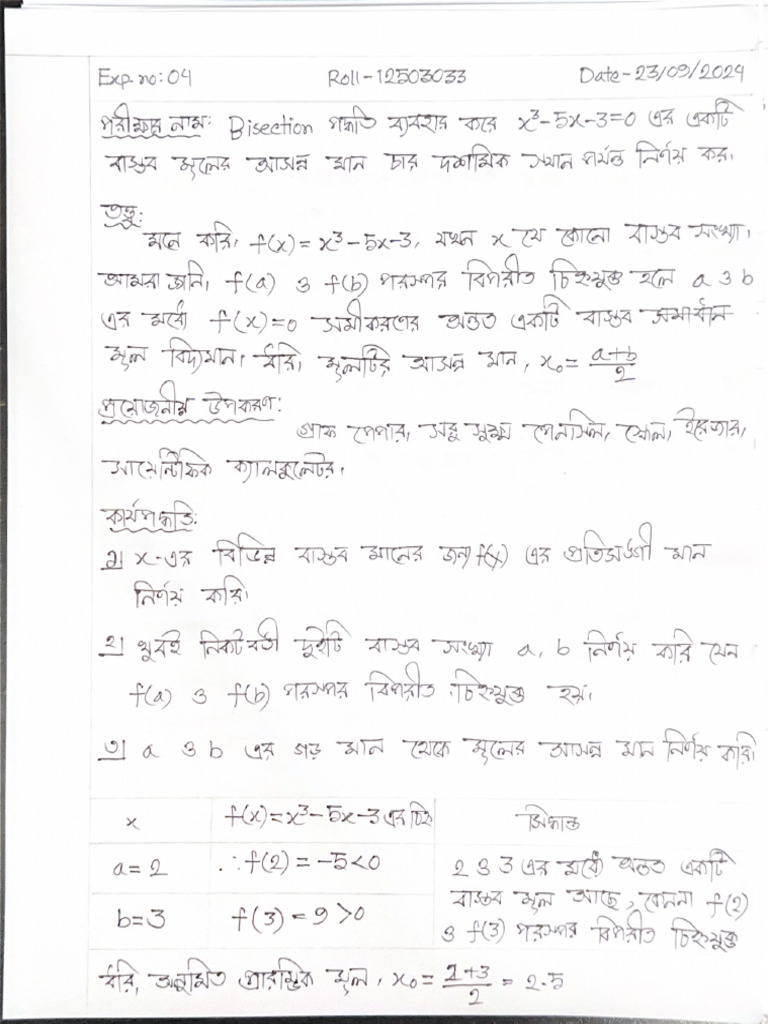 Exp. no: 04 Roll-12503033 Date-23/09/2024
পরীক্ষার নাম: Bisection পদ্ধতি ব্যবহার করে x³-5x-3=0 এর একটি
বাস্তব মূলের আসন্ন মান চার দশমিক স্থান পর্যন্ত নির্ণয় কর।
তত্ত্ব:
মনে করি, f(x) = x³-5x-3, যখন x যে কোনো বাস্তব সংখ্যা।
আমরা জানি, f(a) ও f(b) পরস্পর বিপরীত চিহ্নযুক্ত হলে a ও b
এর মধ্যে f(x)=0 সমীকরণের অন্তত একটি বাস্তব সমাধান
মূল বিদ্যমান। ধরি, মূলটির আসন্ন মান, x₀ = (a+b)/2
প্রয়োজনীয় উপকরণ:
গ্রাফ পেপার, সরু সুক্ষ্ম পেনসিল, স্কেল, ইরেজার,
সায়েন্টিফিক ক্যালকুলেটর।
কার্যপদ্ধতি:
১) x-এর বিভিন্ন বাস্তব মানের জন্য f(x) এর প্রতিসঙ্গী মান
নির্ণয় করি।
২) খুবই নিকটবর্তী দুইটি বাস্তব সংখ্যা a, b নির্ণয় করি যেন
f(a) ও f(b) পরস্পর বিপরীত চিহ্নযুক্ত হয়।
৩) a ও b এর গড় মান থেকে মূলের আসন্ন মান নির্ণয় করি।
x f(x)=x³-5x-3 এর চিহ্ন সিদ্ধান্ত
a=2 ∴f(2) = -5<0 2 ও 3 এর মধ্যে অন্তত একটি
বাস্তব মূল আছে, কেননা f(2)
b=3 f(3) = 9 >0 ও f(3) পরস্পর বিপরীত চিহ্নযুক্ত
ধরি, অনুমিত প্রারম্ভিক মূল, x₀ = (2+3)/2 = 2.5